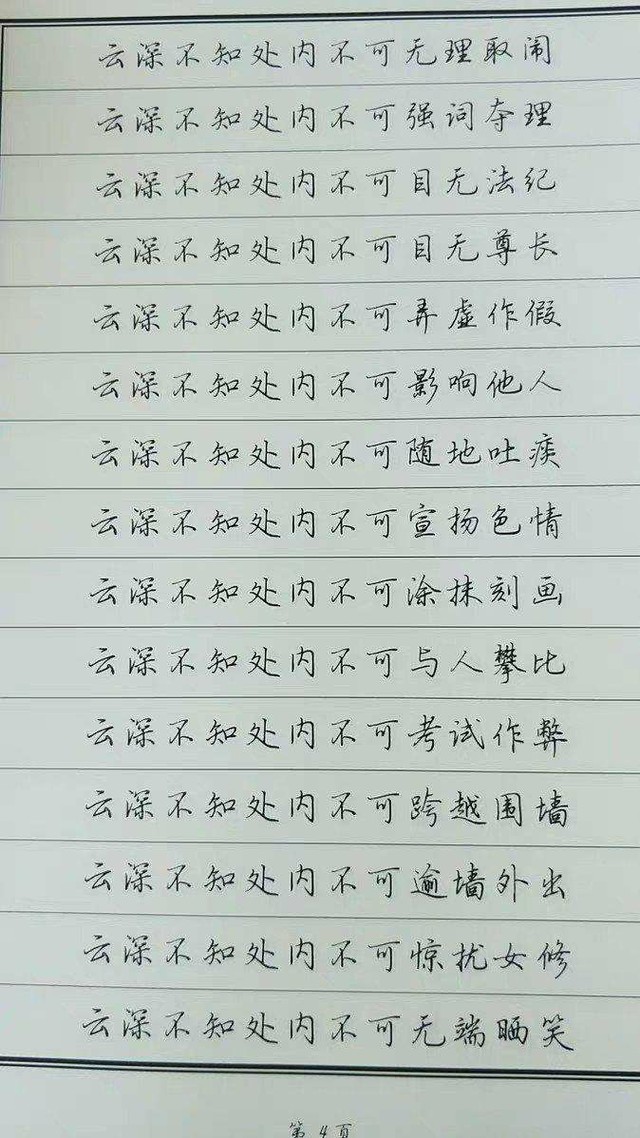 云深不知处内不可无理取闹
云深不知处内不可强词夺理
云深不知处内不可目无法纪
云深不知处内不可目无尊长
云深不知处内不可弄虚作假
云深不知处内不可影响他人
云深不知处内不可随地吐痰
云深不知处内不可宣扬色情
云深不知处内不可涂抹刻画
云深不知处内不可与人攀比
云深不知处内不可考试作弊
云深不知处内不可跨越围墙
云深不知处内不可逾墙外出
云深不知处内不可惊扰女修
云深不知处内不可无端哂笑
第4页